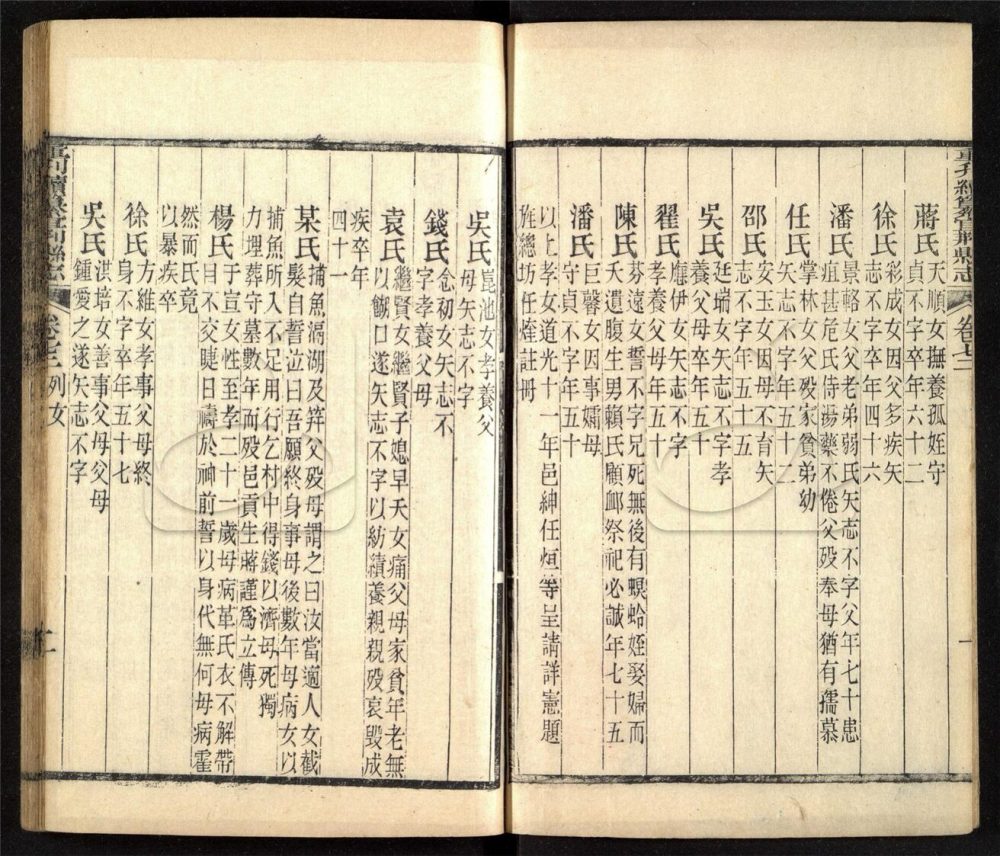 蔣氏 天順女撫養孤姪守
貞不字卒年六十二
徐氏 彩成女因父多疾矢
志不字卒年四十六
潘氏 景輅女父老弟弱氏矢志不字父年七十患
疽甚危氏侍湯藥不倦父歿奉母猶有孺慕
任氏 掌林女父歿家貧弟幼
矢志不字年五十二
邵氏 安玉女因母不育矢
志不字年五十五
吳氏 廷瑞女矢志不字孝
養父母卒年五十
翟氏 應伊女矢志不字
孝養父母年五十
陳氏 芬遠女誓不字兄死無後有螟蛉姪娶婦而
夭遺腹生男賴氏顧卹祭祀必誠年七十五
潘氏 巨馨女因事孀母
守貞不字年五十
以上孝女道光十一年邑紳任烜等呈請詳憲題
旌總坊任煃註冊
吳氏 崑池女孝養父
母矢志不字
錢氏 念初女矢志不
字孝養父母
袁氏 繼賢女繼賢子媳早夭女痛父母家貧年老無
以餬口遂矢志不字以紡績養親親歿哀毀成
疾卒年
四十一
某氏 捕魚滆湖及笄父歿母謂之曰汝當適人女截
髮自誓泣曰吾願終身事母後數年母病女以
捕魚所入不足用行乞村中得錢以濟母死獨
力埋葬守墓數年而歿邑貢生蔣謹為立傳
楊氏 于宣女性至孝二十一歲母病革氏衣不解帶
目不交睫日禱於神前誓以身代無何母病霍
然而氏竟
以暴疾卒
徐氏 方維女孝事父母終
身不字卒年五十七
吳氏 淇培女善事父母父母
鍾愛之遂矢志不字
列女